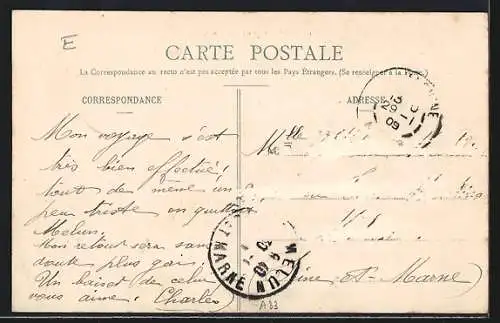 E
CARTE POSTALE
La Correspondance au recto n'est pas acceptée par tous les Pays Étrangers. (Se renseigner à la Poste)
CORRESPONDANCE
ADRESSE
Mon voyage s'est
très bien effectué!
tout de même un
peu triste en quittant
Melun.
Mon retour sera sans
doute plus gai.
Un baiser de celui
vous aime. Charles
Melle
Seine-et-Marne
13
29-10
09
MELUN
ET-MARNE
A33